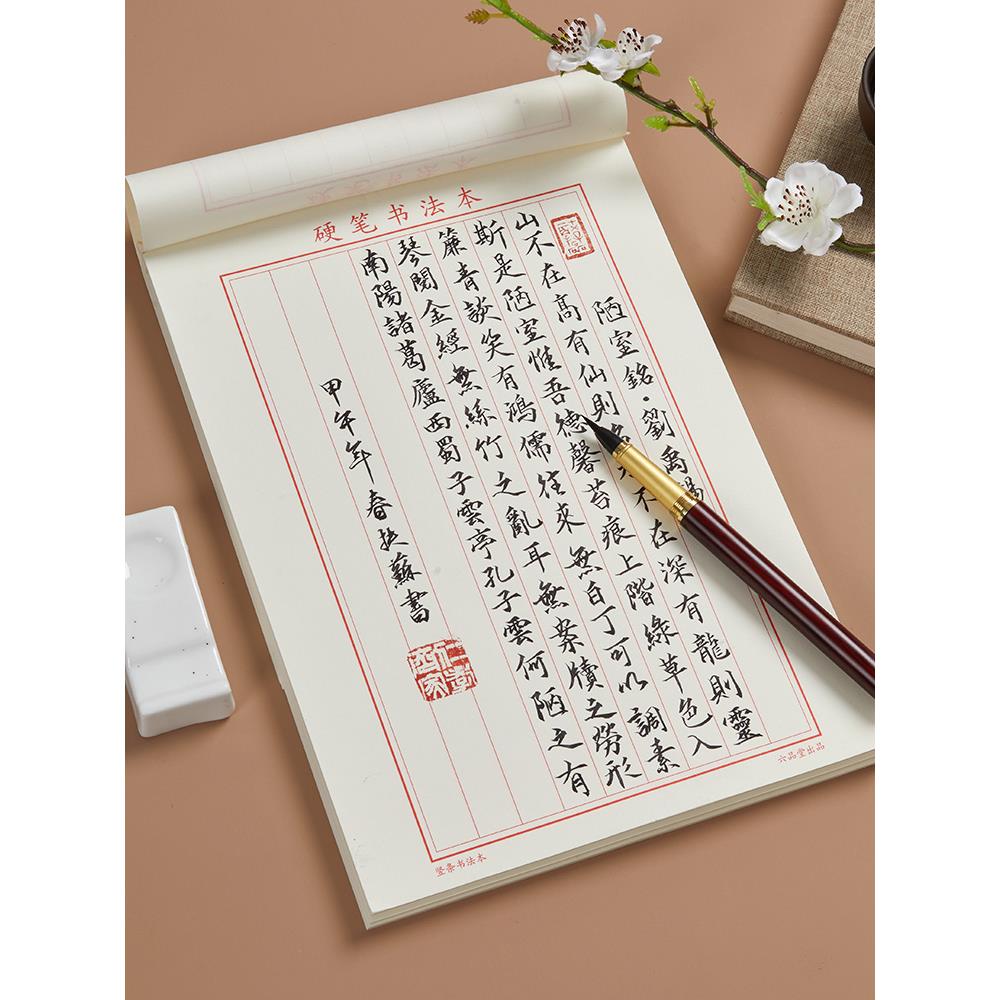 硬笔书法本
陋室銘·劉禹
山不在高有仙則名不在深有龍則靈
斯是陋室惟吾德馨苔痕上階綠草色入
簾青談笑有鴻儒往來無白丁可以調素
琴閱金經無絲竹之亂耳無案牘之勞形
南陽諸葛廬西蜀子雲亭孔子雲何陋之有
甲午年春扶蘇書
六品堂出品
竖条书法本